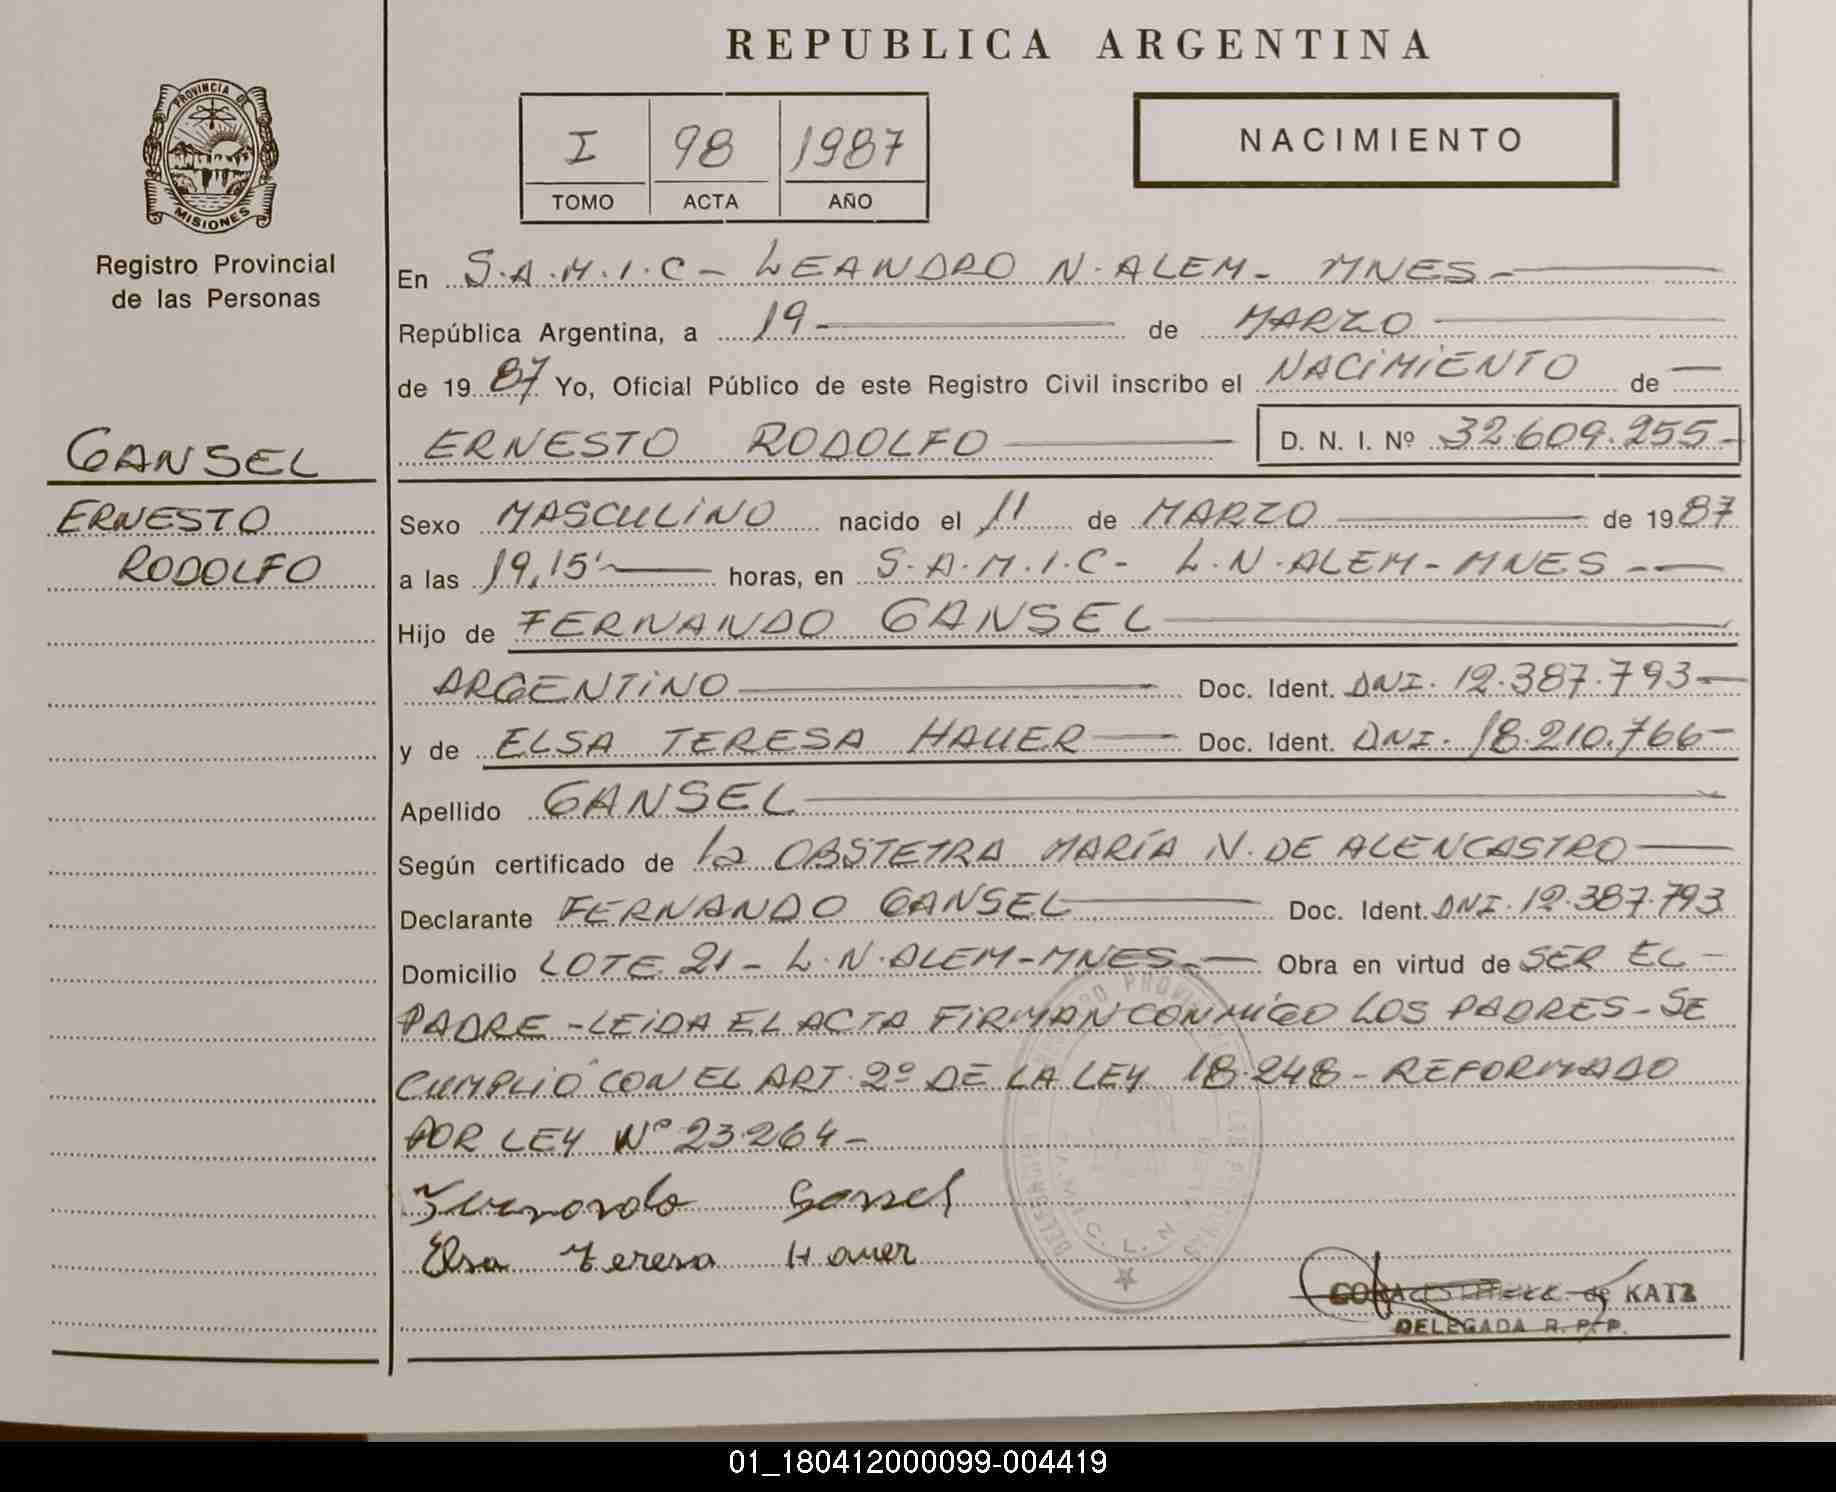 REPUBLICA ARGENTINA
PROVINCIA DE
MISIONES
Registro Provincial
de las Personas
I 98 1987
TOMO ACTA AÑO
NACIMIENTO
GANSEL
ERNESTO
RODOLFO
En S.A.M.I.C- LEANDRO N. ALEM- MNES-
República Argentina, a 19- de MARZO
de 1987 Yo, Oficial Público de este Registro Civil inscribo el NACIMIENTO de
ERNESTO RODOLFO D. N. I. Nº 32.609.255-
Sexo MASCULINO nacido el 11 de MARZO de 1987
a las 19,15' horas, en S.A.M.I.C- L.N.ALEM-MNES-
Hijo de FERNANDO GANSEL
ARGENTINO Doc. Ident. DNI. 12.387.793-
y de ELSA TERESA HAUER Doc. Ident. DNI. 18.210.766-
Apellido GANSEL
Según certificado de la OBSTETRA MARÍA N. DE ALENCASTRO
Declarante FERNANDO GANSEL Doc. Ident. DNI. 12.387.793
Domicilio LOTE 21- L.N.ALEM-MNES- Obra en virtud de SER EL-
PADRE-LEIDA EL ACTA FIRMAN CONMIGO LOS PADRES-SE
CUMPLIO CON EL ART. 2º DE LA LEY 18.248-REFORMADO
POR LEY Nº 23.264-
Fernando Gansel
Elsa Teresa Hauer
de KATZ
DELEGADA R. P. P.
01_180412000099-004419